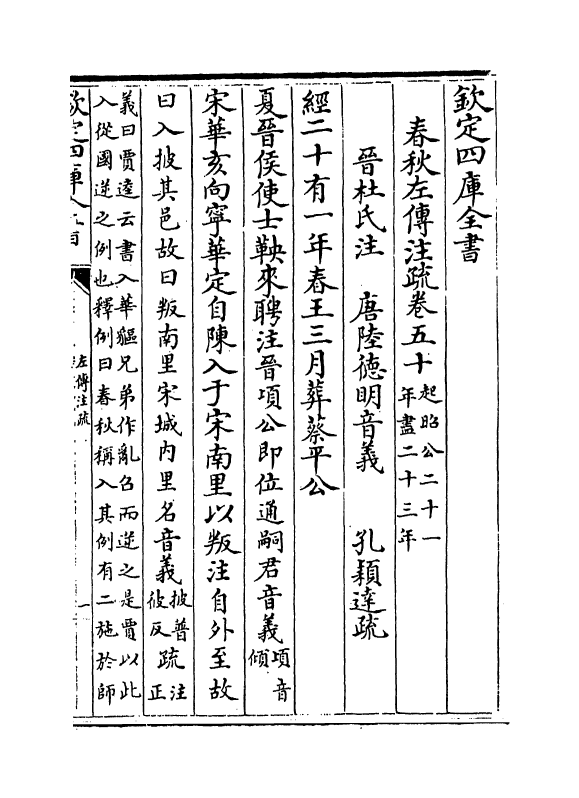 欽定四庫全書
春秋左傳注疏卷五十 起昭公二十一
年盡二十三年
晉杜氏注 唐陸德明音義 孔穎達疏
經二十有一年春王三月葬蔡平公
夏晉侯使士鞅來聘注晉頃公即位通嗣君音義 頃音
傾
宋華亥向寧華定自陳入于宋南里以叛注自外至故
曰入披其邑故曰叛南里宋城内里名音義 披普
彼反 疏 注
正
義曰賈逵云書入華貙兄弟作亂召而逆之是賈以此
入從國逆之例也釋例曰春秋稱入其例有二施於師
左傳注疏
一